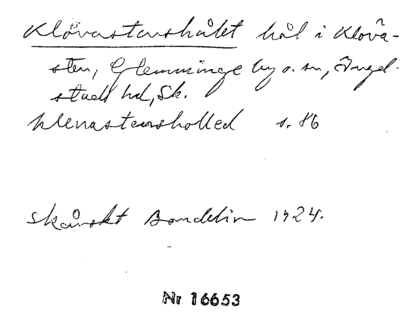 Klövastenshålet hål i Klöva-
sten, Glemminge by o. sn, Ingel-
stads hd, Sk.
klevastensholled s. 86
Skånskt Bondeliv 1924.
Nr 16653